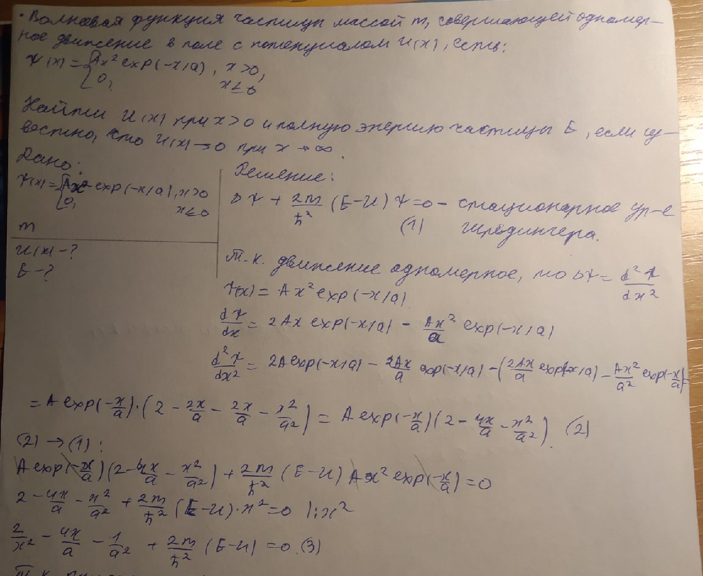 • Волновая функция частицы массой m, совершающей одномер-
ное движение в поле с потенциалом U(x), есть:
Ψ(x) = { Ax² exp(-x/a), x>0,
0, x≤0
Найти U(x) при x>0 и полную энергию частицы E, если из-
вестно, что U(x)→0 при x→∞.
Дано:
Ψ(x) = { Ax² exp(-x/a), x>0
0, x≤0
m
U(x) - ?
E - ?
Решение:
ΔΨ + 2m/ħ² (E-U) Ψ = 0 - стационарное ур-е
(1) Шредингера.
Т.к. движение одномерное, то ΔΨ = d²Ψ/dx²
Ψ(x) = Ax² exp(-x/a)
dΨ/dx = 2Ax exp(-x/a) - Ax²/a exp(-x/a)
d²Ψ/dx² = 2A exp(-x/a) - 2Ax/a exp(-x/a) - (2Ax/a exp(-x/a) - Ax²/a² exp(-x/a)) =
= A exp(-x/a)·(2 - 2x/a - 2x/a - x²/a²) = A exp(-x/a)(2 - 4x/a - x²/a²) (2)
(2) → (1):
A exp(-x/a)(2 - 4x/a - x²/a²) + 2m/ħ² (E-U) Ax² exp(-x/a) = 0
2 - 4x/a - x²/a² + 2m/ħ² (E-U)·x² = 0 |:x²
2/x² - 4x/a - 1/a² + 2m/ħ² (E-U) = 0. (3)